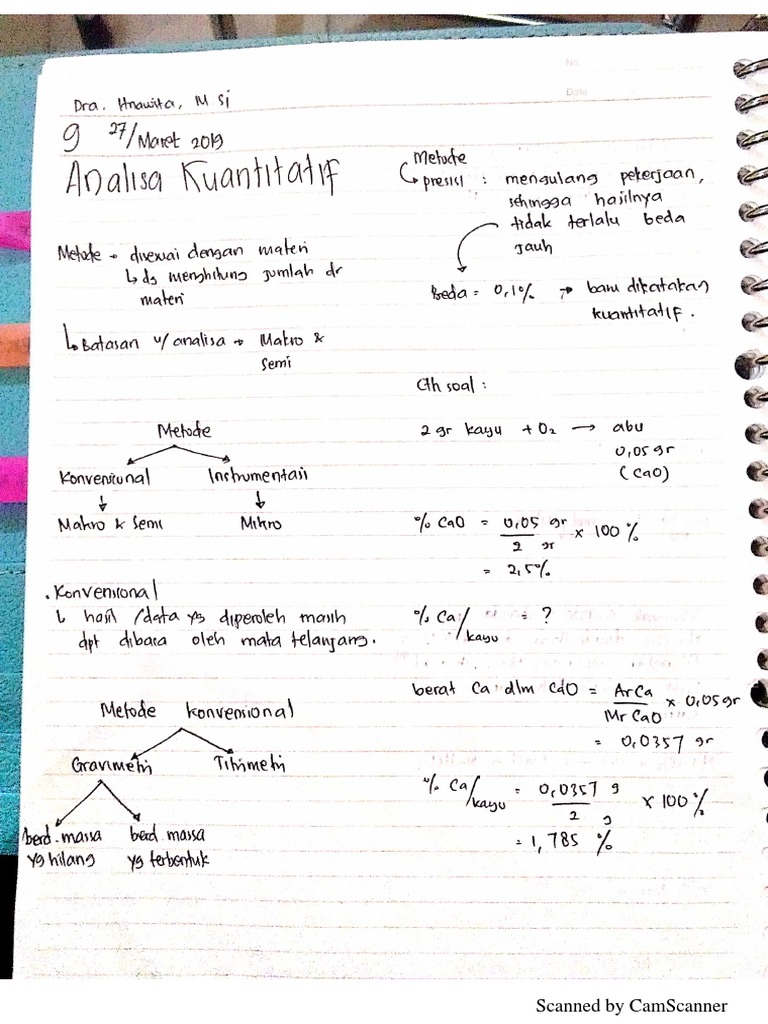 No.
Date
Dra. Hnawita, M Si
9 27/Maret 2019
Analisa Kuantitatif
Metode → disesuai dengan materi
↳ dg menghitung jumlah dr
materi
↳ Batasan u/ analisa → Makro &
Semi
Metode
Konvensional Instrumentasi
↓ ↓
Makro & Semi Mikro
. Konvensional
↳ hasil /data yg diperoleh masih
dpt dibaca oleh mata telanjang.
Metode konvensional
Gravimetri Titrimetri
berd. massa berd massa
yg hilang yg terbentuk
Metode
↳ presisi : mengulang pekerjaan,
sehingga hasilnya
tidak terlalu beda
jauh
Beda = 0,1% → baru dikatakan
kuantitatif.
Cth soal :
2 gr kayu + O2 → abu
0,05 gr
(CaO)
% CaO = 0,05 gr / 2 gr x 100 %
= 2,5%
% Ca/kayu = ?
berat Ca dlm CaO = Ar Ca / Mr CaO x 0,05 gr
= 0,0357 gr
% Ca/kayu = 0,0357 g / 2 g x 100 %
= 1,785 %
Scanned by CamScanner